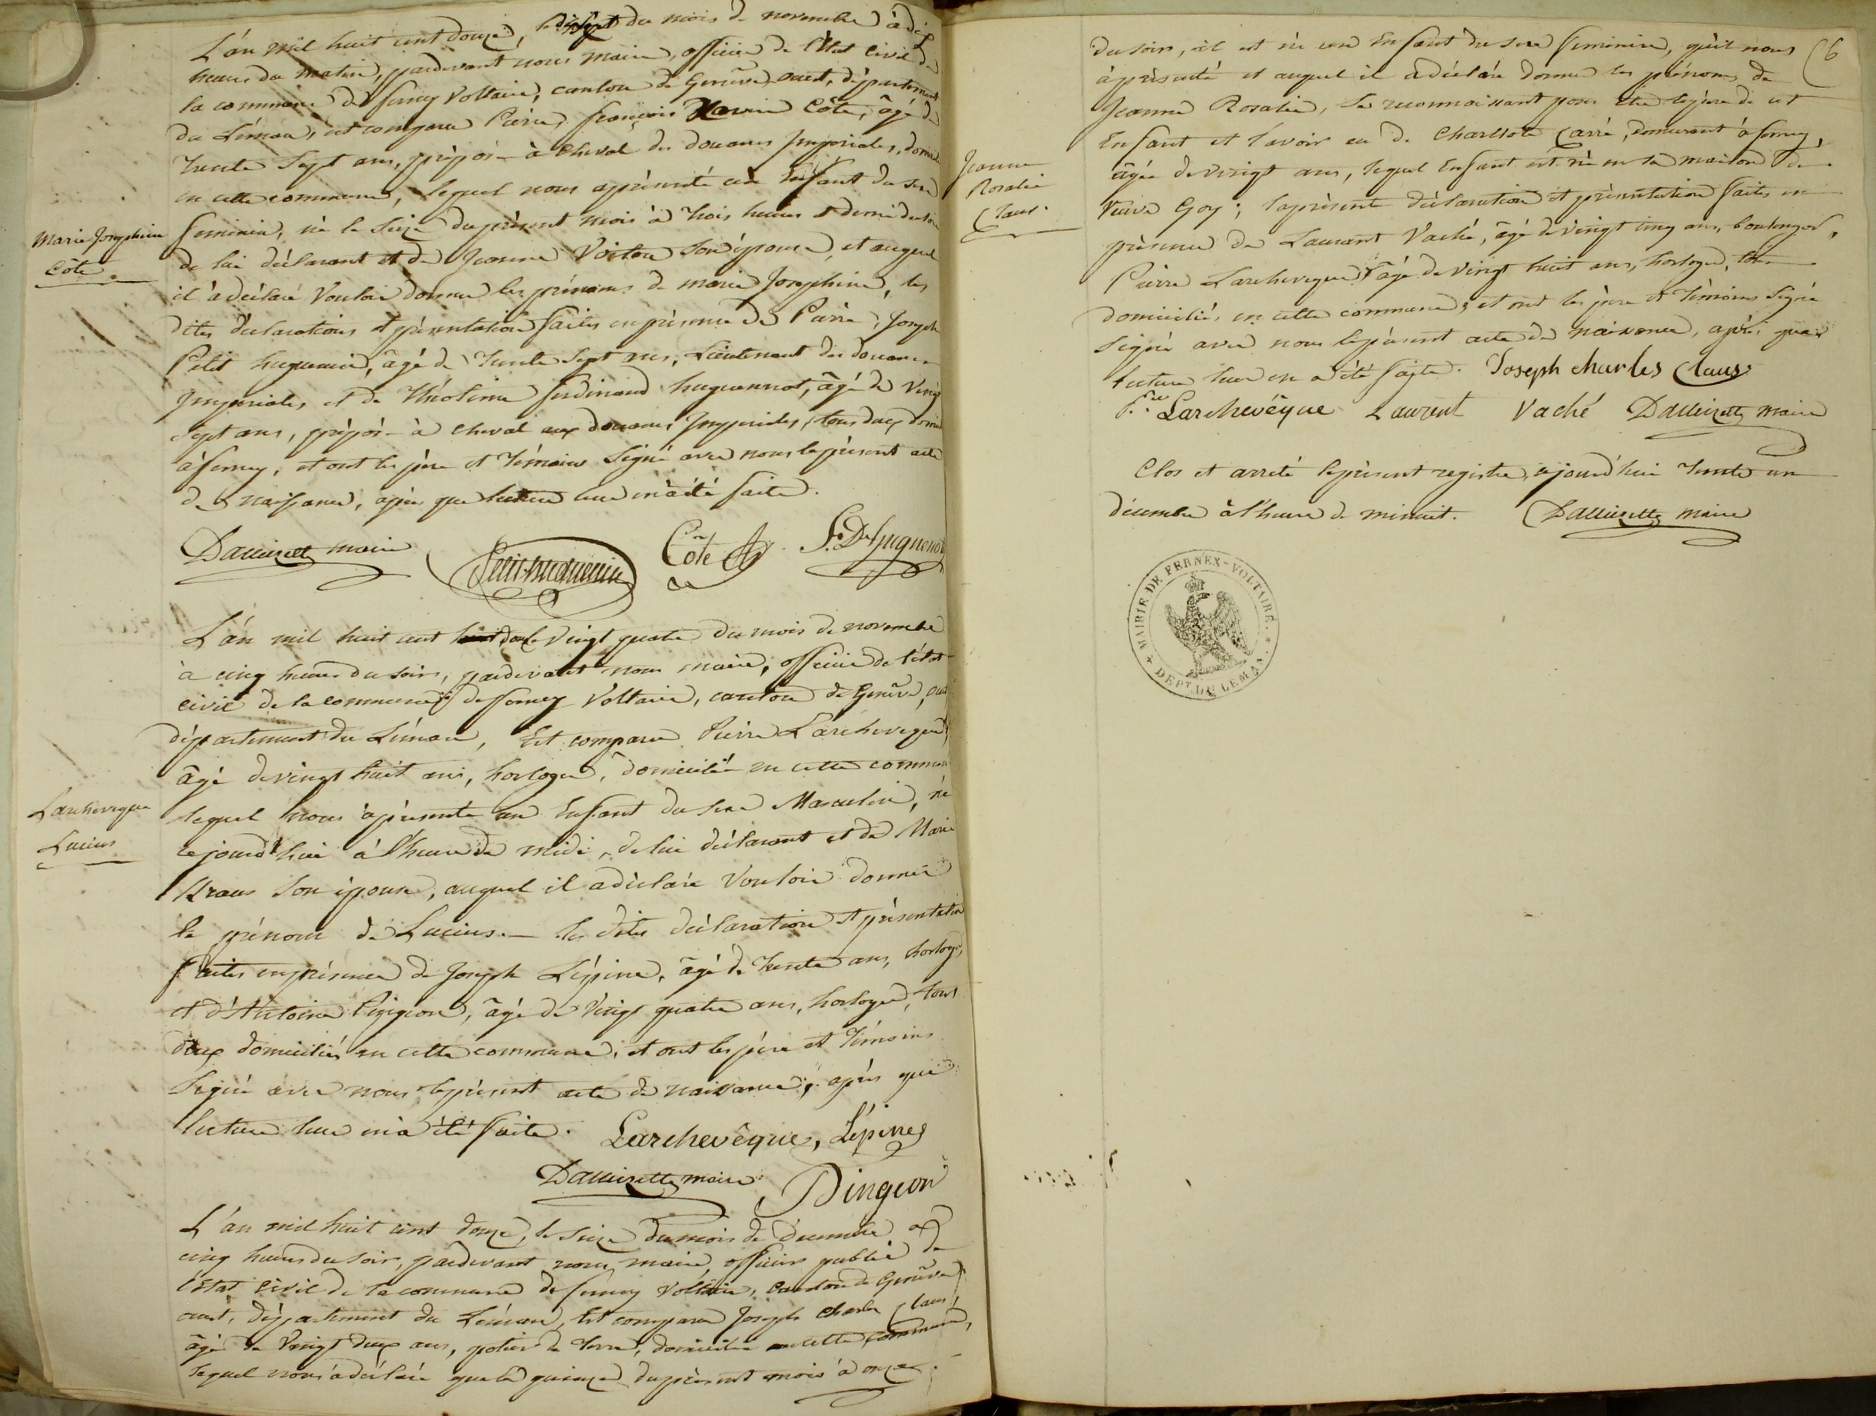 L'an mil huit cent douze, le dix sept du mois de novembre à dix
heures du matin, pardevant nous maire, officier de l'état civil de
la commune de ferney Voltaire, canton de Genêve ouest, département
du Léman, est comparu Pierre françois Marie Côte, âgé de
trente sept ans, préposé à cheval des douanes Impériales, domicilié
en cette commune, lequel nous a présenté un Enfant du sexe
Marie Josephine
Côte
feminin, né le seize du présent mois à trois heures et demi du soir
de lui déclarant et de Jeanne Voiton son épouse, et auquel
il a déclaré vouloir donner les prénoms de marie Josephine, les
dites déclarations et présentation faites en présence de Pierre, Joseph
Petit huguenin, âgé de trente sept ans, Lieutenant des douanes
Impériales, et de théotime ferdinand huguennot, âgé de Vingt
sept ans, préposé à cheval aux douanes Impériales, tous deux domiciliés
à ferney, et ont les père et témoins signé avec nous le présent acte
de naissance, après que lecture leur en a été faite.
maire Petit-huguenin Côte
L'an mil huit cent douze le vingt quatre du mois de novembre
à cinq heures du soir, pardevant nous maire, officier de l'état
civil de la commune de ferney Voltaire, canton de Genêve, ouest
département du Léman, Est comparu Pierre Larcheveque
âgé de vingt huit ans, horloger, domicilié en cette commune
Larcheveque
Lucius
lequel nous a présenté un Enfant du sexe Masculin, né
cejourd'hui à l'heure de midi, de lui déclarant et de Marie
Kraus son épouse, auquel il a déclaré vouloir donner
le prénom de Lucius. les dites déclaration et présentation
faites en présence de Joseph Lépine, âgé de trente ans, horloger,
et d'Antoine Pignion, âgé de vingt quatre ans, horloger, tous
deux domiciliés en cette commune, et ont les père et témoins
signé avec nous le présent acte de naissance, après que
lecture leur en a été faite. Larchevêque, Lépine
maire
L'an mil huit cent douze, le seize du mois de décembre à
cinq heures du soir, pardevant nous maire, officier public de
l'état civil de la commune de ferney Voltaire, canton de Genêve
ouest, département du Léman, Est comparu Joseph Charles Claus,
âgé de vingt deux ans, potier de terre, domicilié en cette commune,
lequel nous a déclaré que le quinze du présent mois à onze
6
du soir, il est né un Enfant du sexe feminin, qu'il nous
à présenté et auquel il a déclaré donner les prénoms de
Jeanne Rosalie, se reconnaissant pour être le père de cet
Enfant et l'avoir eu de Charlote Carré, demeurant à ferney,
Jeanne
Rosalie
Claus
âgée de vingt ans, lequel Enfant est né en la maison de
veuve Goy; la présent déclaration et présentation faite en
présence de Laurent Vaché, âgé de vingt cinq ans, boulanger,
Pierre Larcheveque, âgé de vingt huit ans, horloger, tous
domiciliés en cette commune, et ont les père et témoins signé
signé avec nous le présent acte de naissance, après que
lecture leur en a été faite. Joseph charles Claus
Larchevêque Laurent Vaché maire
Clos et arreté le présent registre cejourd'hui trente un
décembre à l'heure de minuit. maire
MAIRIE DE FERNEX-VOLTAIRE. * DEPT. DU LEMAN. *